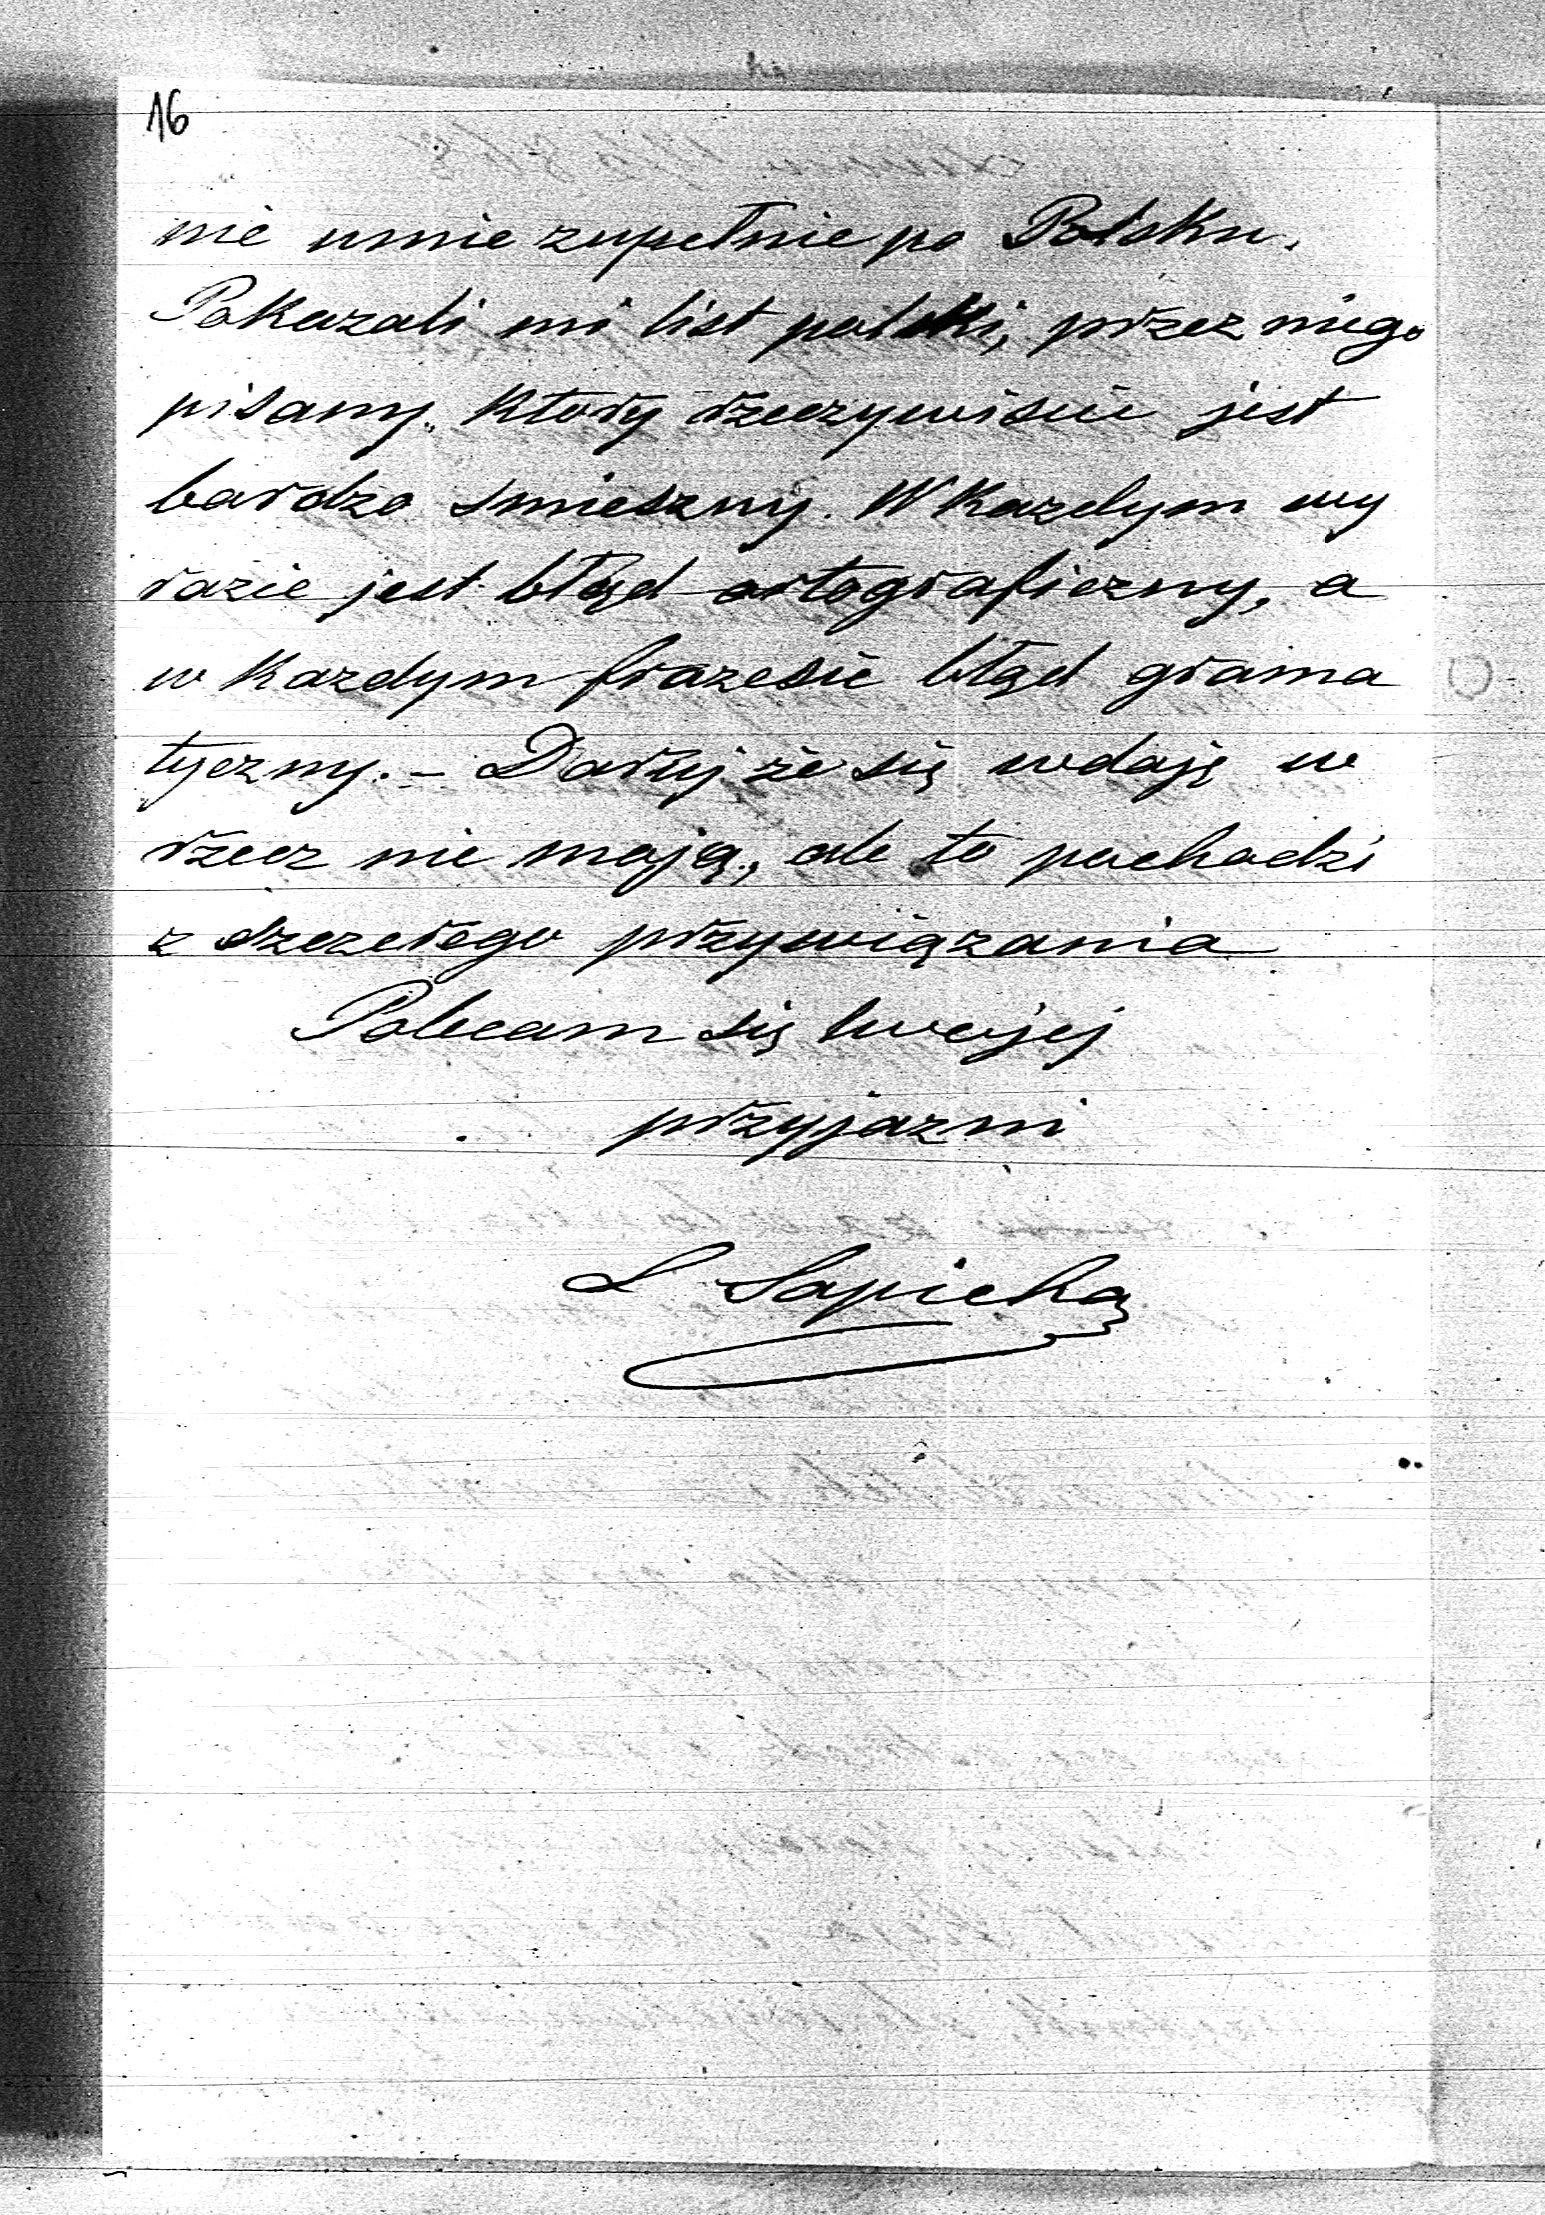 16
nie umie zupełnie po Polsku.
Pokazali mi list polski, przez niego
pisany, Który rzeczywiscie jest
bardzo smieszny. W Kazdym wy
razie jest błąd ortograficzny, a
w Kazdym frazesie błąd grama
tyczny. – Daruj że się wdaję w
rzecz nie moją, ale to pochodzi
z szczerego przywiązania
Polecam się twojej
przyjazni
L Sapieha